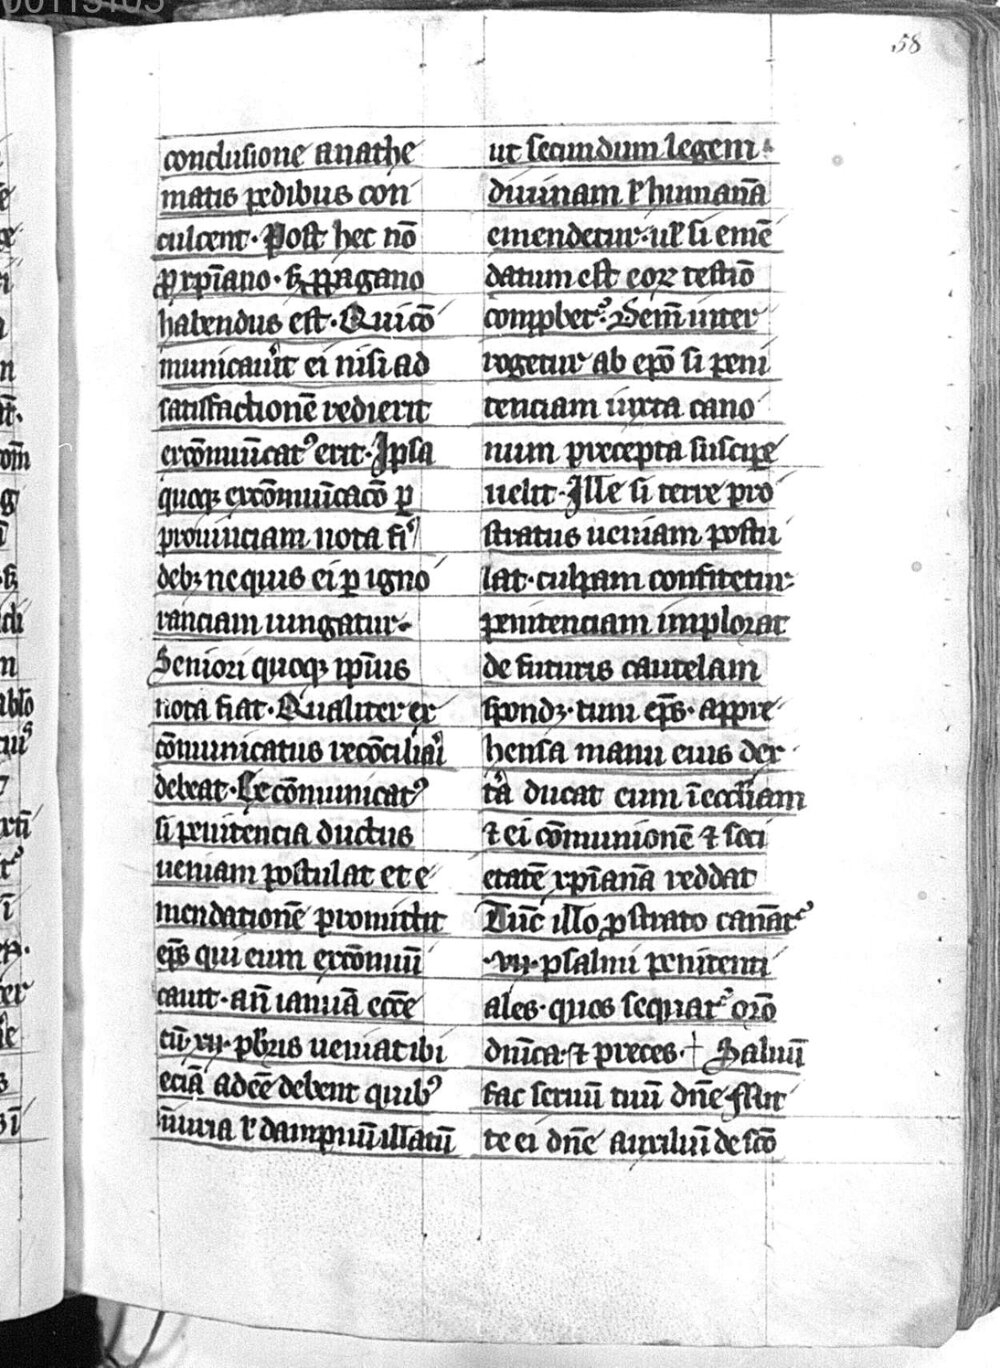 58
conclusione anathe
matis pedibus con
culcent. Post hec nō
p xp̄iano. sꝫ p pagano
habendus est. Qui cō
municau̾it ei nisi ad
satisfactionē redierit
excōmūicatꝰ erit. Ipsa
quoqꝫ excōmūicacō ꝑ
prouinciam nota fi
debꝫ ne quis ei ꝑ igno
ranciam iungatur.
Seniori quoqꝫ ip̄ius
nota fiat. Qualiter ex
cōmunicatus recōciliari
debeat. Excōmunicatꝰ
si penitencia ductus
ueniam postulat et e
mendationē promittit
ep̄s qui eum excōmūi
cauit. an̄ ianuā ecc̄e
cū .xii. pb̄ris ueniat ibi
eciā adeē debent quibꝰ
iniuria ł dampnū illatū
ut secundum legem
diuinam ł humanā
emendetur. uł si emē
datum est eoꝝ testiō
comp̱betꝰ. Dem̄ inter
rogetur ab ep̄o si peni
tenciam iuxta cano
num precepta suscipe
uelit. Ille si terre pro
stratus ueniam postu
lat. culpam confitetur
penitenciam implorat
de futuris cautelam
spondꝫ. tum ep̄s. appre
hensa manu eius dex
tra ducat eum ī eccl̄iam
⁊ ei cōmunionē ⁊ soci
etatē xp̄ianā reddat
Tūc illo ꝓstrato canātꝰ
.vii. psalmi penitenti
ales. quos sequatꝰ orō
dn̄ica. ⁊ preces. Saluū
fac seruū tuū dn̄e. Mit
te ei dn̄e auxiliū de sc̄o